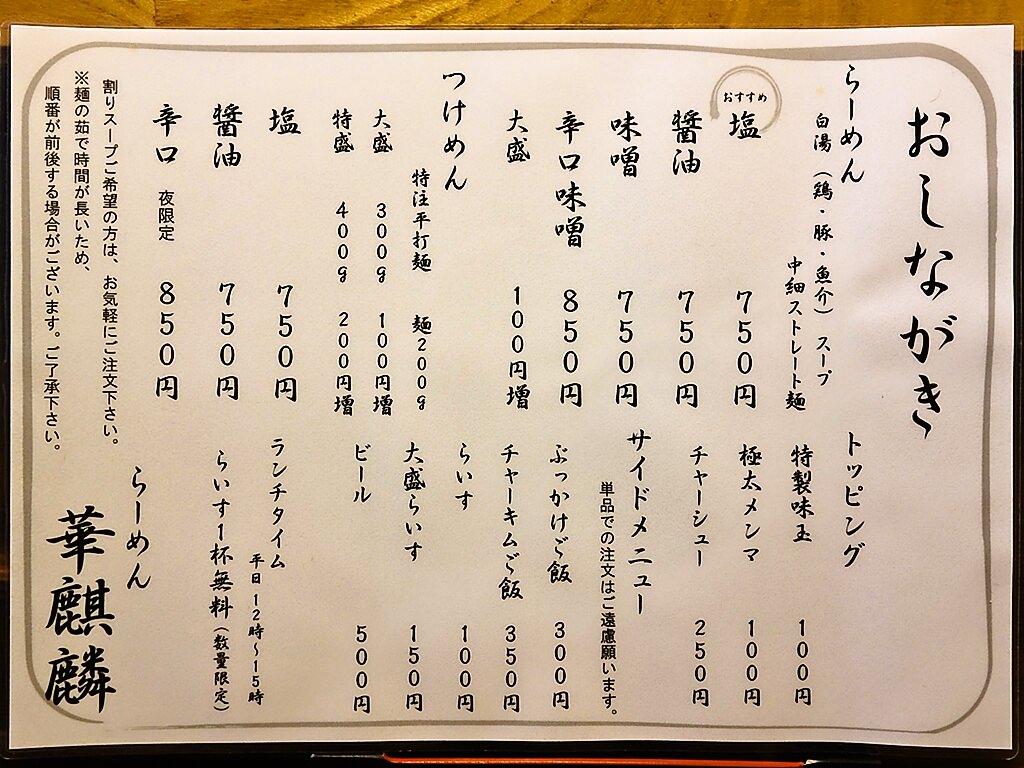 おしながき
らーめん
白湯(鶏・豚・魚介)スープ
中細ストレート麺
おすすめ
塩 750円
醤油 750円
味噌 750円
辛口味噌 850円
大盛 100円増
つけめん
特注平打麺 麺200g
大盛 300g 100円増
特盛 400g 200円増
塩 750円
醤油 750円
辛口 夜限定 850円
割りスープご希望の方は、お気軽にご注文下さい。
※麺の茹で時間が長いため、
順番が前後する場合がございます。ご了承下さい。
トッピング
特製味玉 100円
極太メンマ 100円
チャーシュー 250円
サイドメニュー
単品での注文はご遠慮願います。
ぶっかけご飯 300円
チャーキムご飯 350円
らいす 100円
大盛らいす 150円
ビール 500円
ランチタイム
平日12時～15時
らいす1杯無料(数量限定)
らーめん
華麒麟